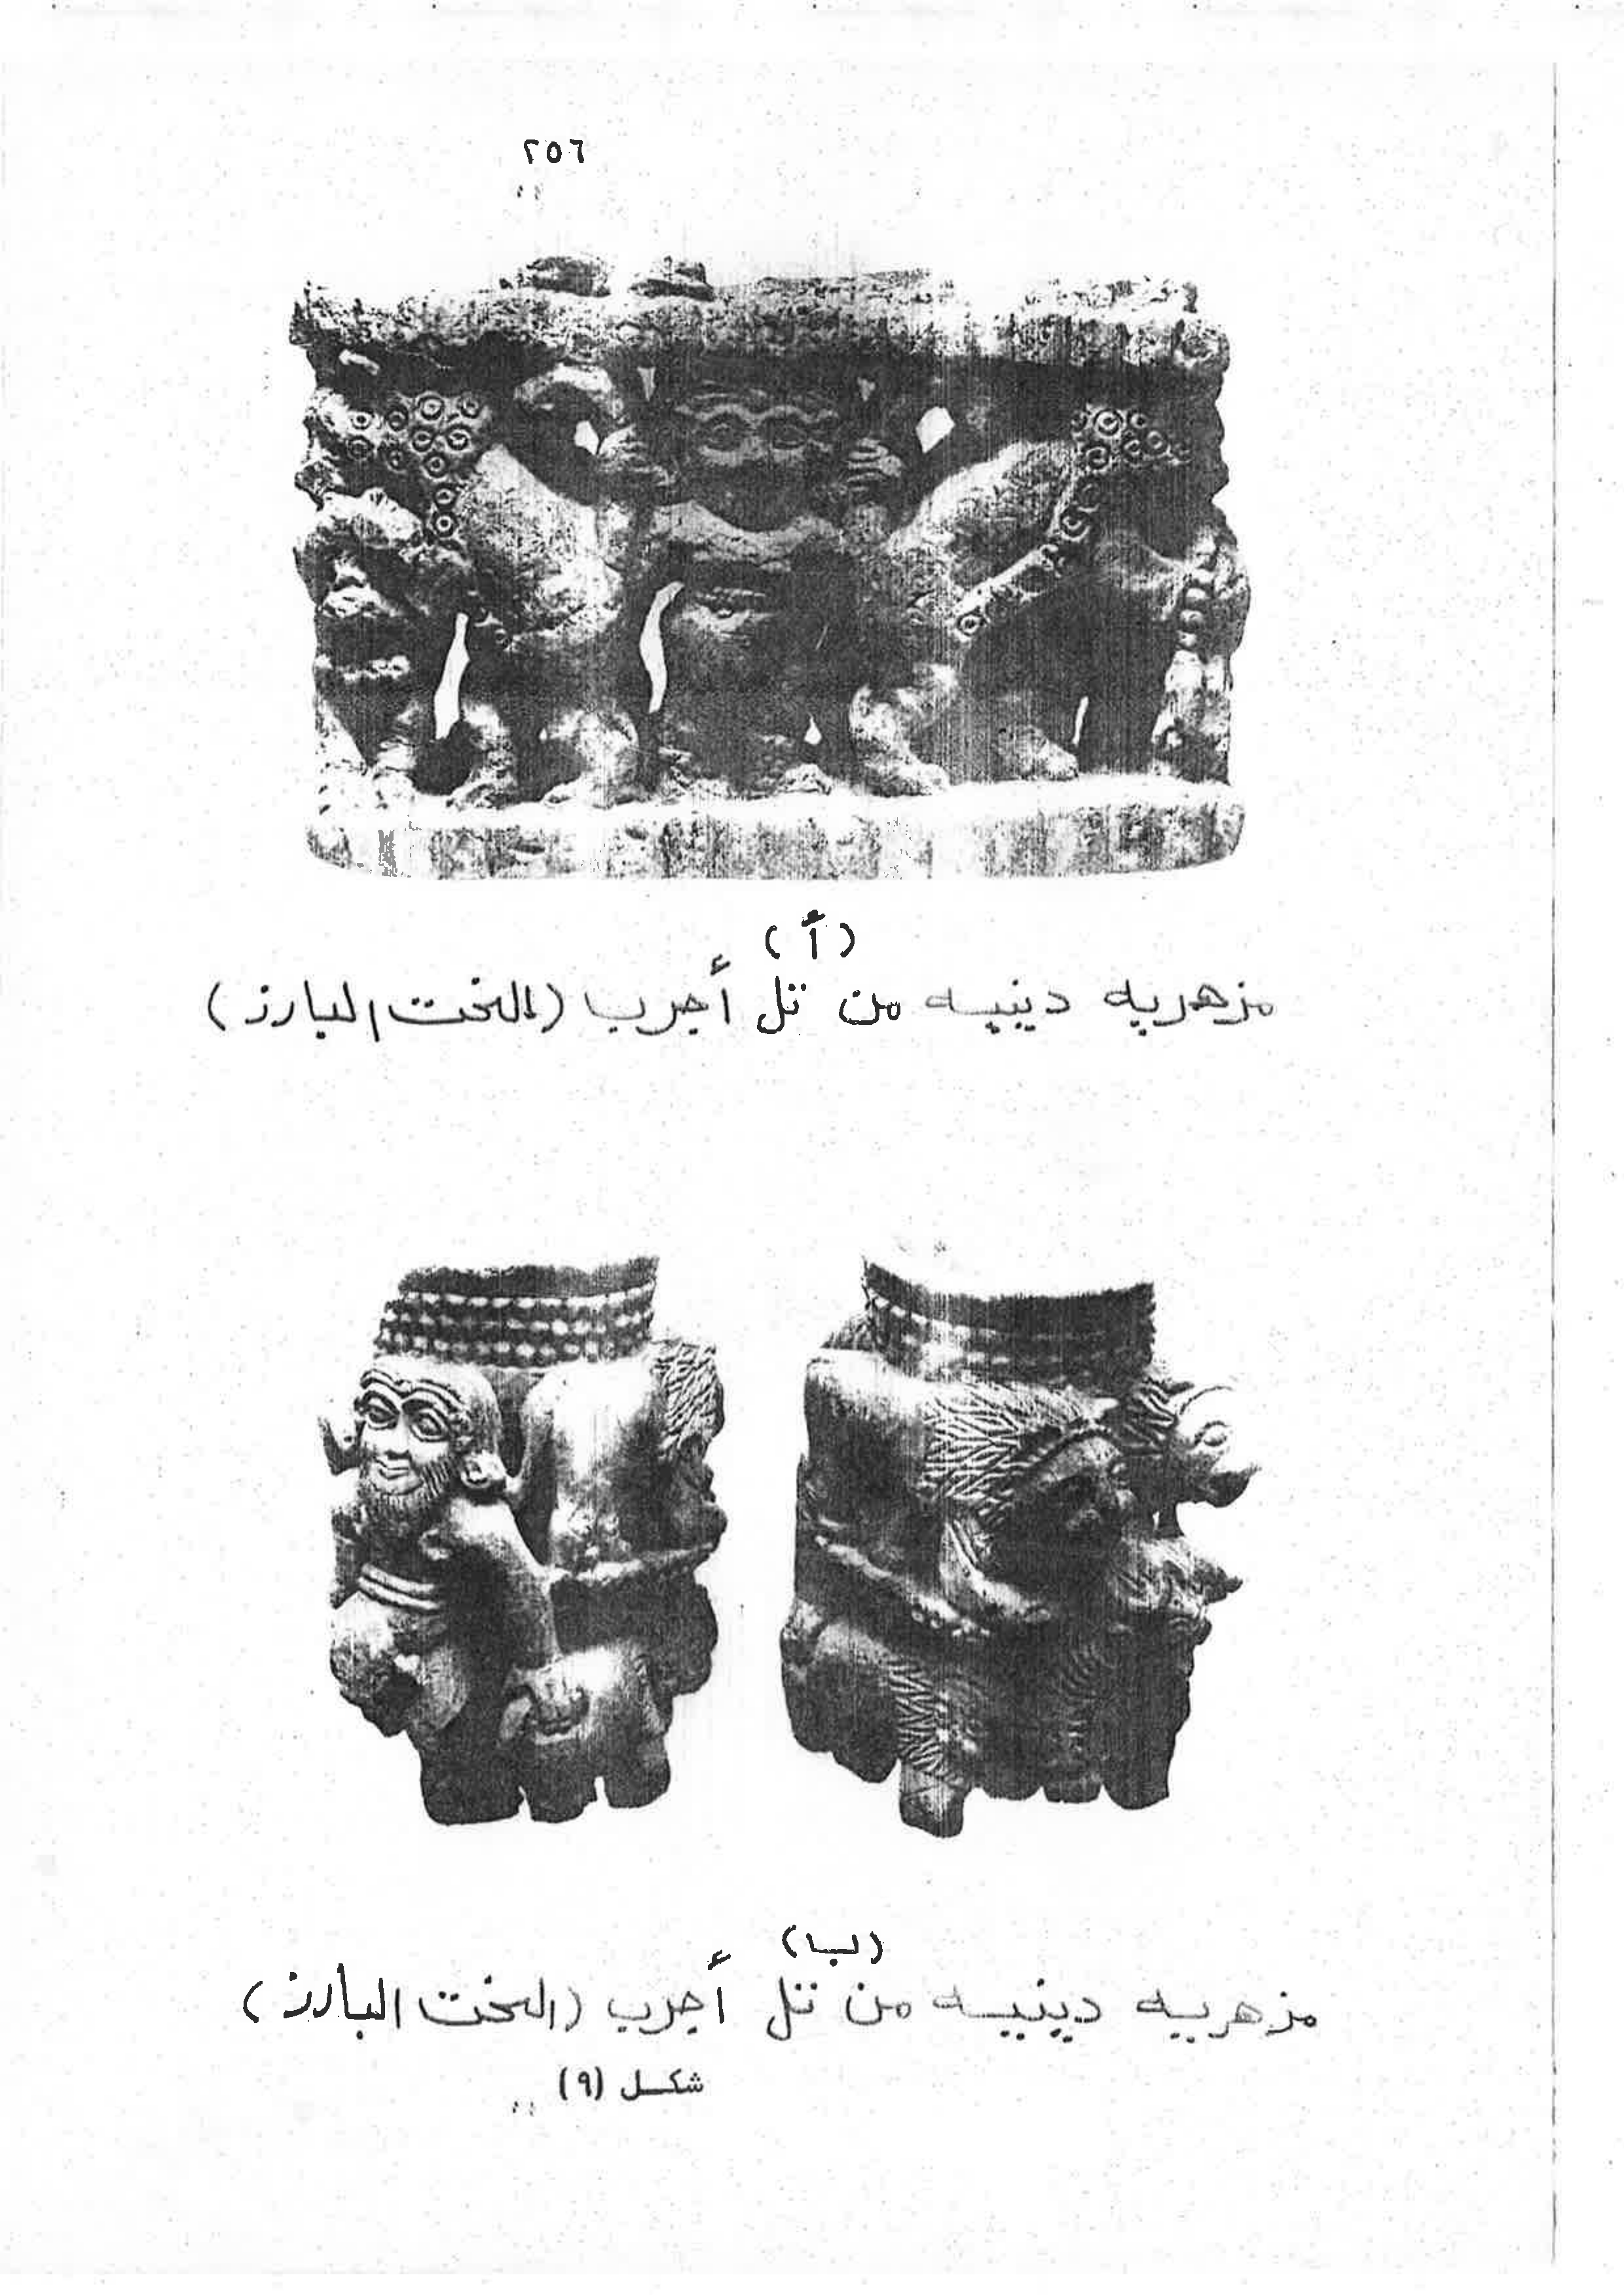 ٢٥٦
(أ)
مزهريه دينيه من تل أجرب (النحت البارز)
(ب)
مزهرييه دينيه من تل أجرب (النحت البارز)
شكل (٩)